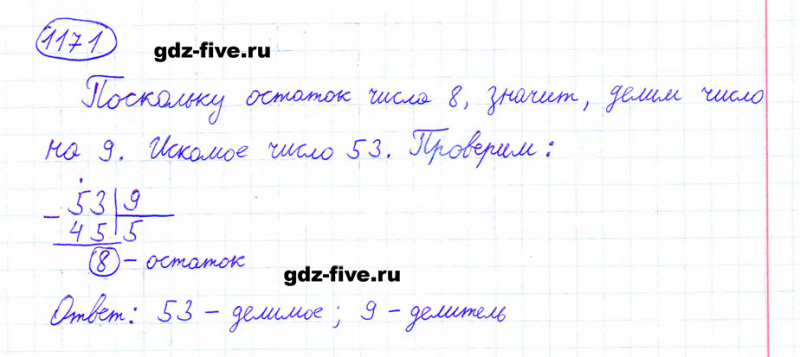 1171
gdz-five.ru
Поскольку остаток числа 8, значит, делим число
на 9. Искомое число 53. Проверим:
- 53 | 9
45 | 5
8 - остаток
gdz-five.ru
Ответ: 53 - делимое; 9 - делитель